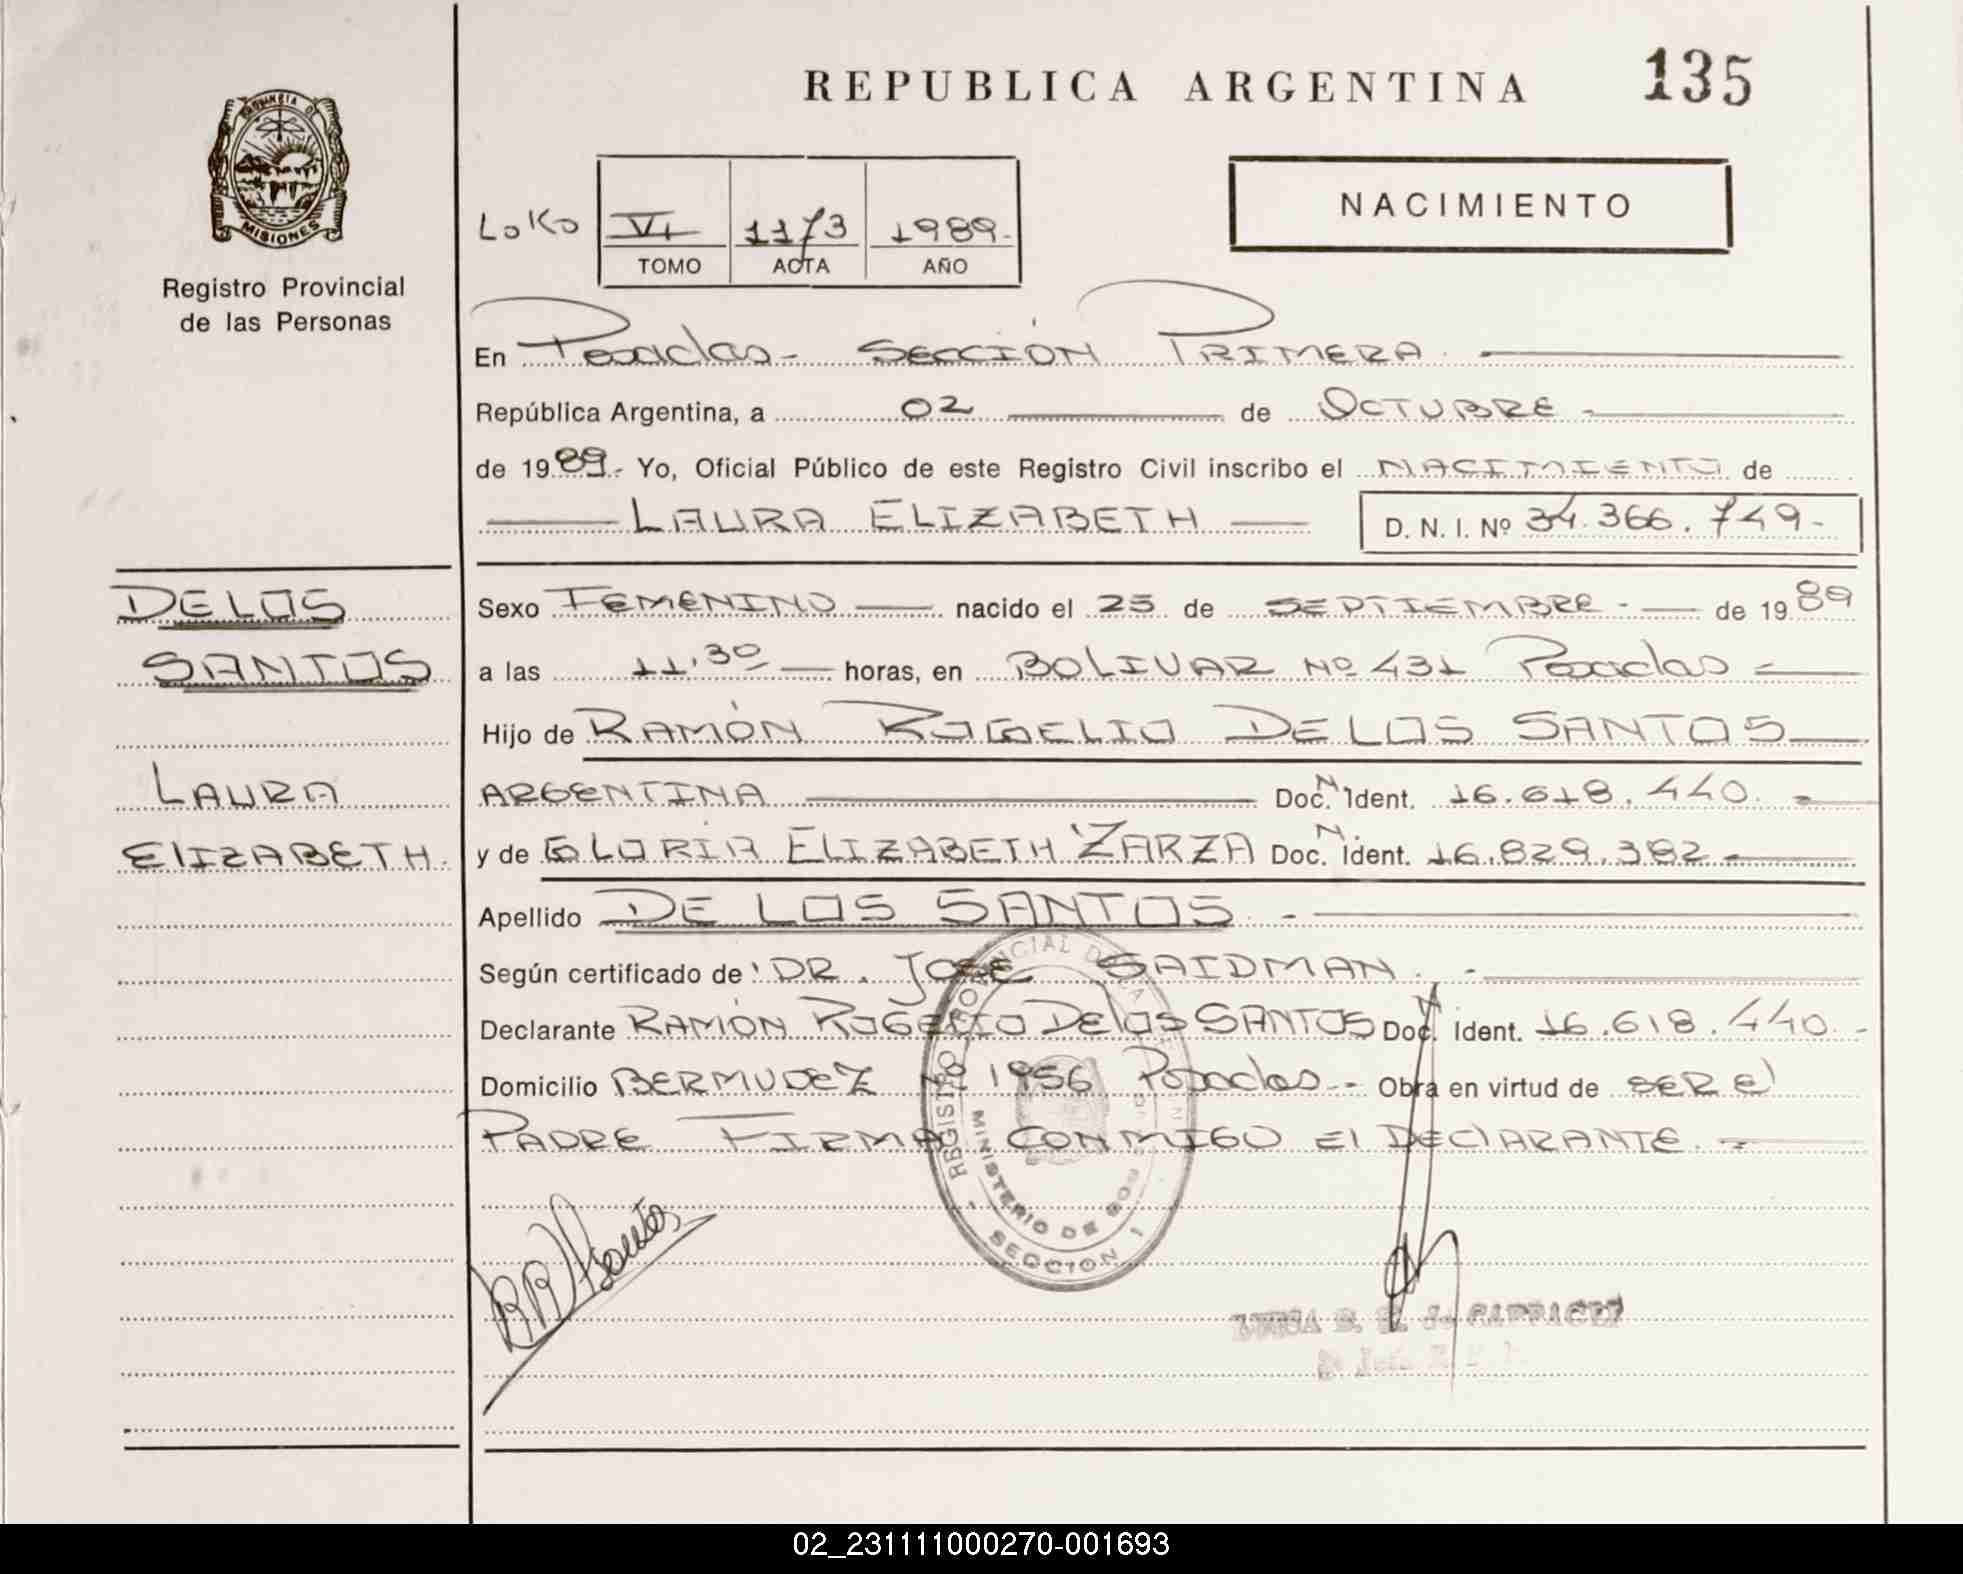 REPUBLICA ARGENTINA 135
PROVINCIA DE
MISIONES
Registro Provincial
de las Personas
NACIMIENTO
VI 1173 1989.-
TOMO ACTA AÑO
En Posadas- SECCIÓN PRIMERA.
República Argentina, a 02 de OCTUBRE -
de 1989.- Yo, Oficial Público de este Registro Civil inscribo el NACIMIENTO de
LAURA ELIZABETH
D. N. I. Nº 34.366.749-
DE LOS
SANTOS
LAURA
ELIZABETH.
Sexo FEMENINO nacido el 25 de SEPTIEMBRE - de 1989
a las 11,30 horas, en BOLIVAR Nº 431 Posadas -
Hijo de RAMÓN ROGELIO DE LOS SANTOS
ARGENTINA Doc. N Ident. 16.618.440. -
y de GLORIA ELIZABETH ZARZA Doc. N Ident. 16.829.382 -
Apellido DE LOS SANTOS. -
Según certificado de: DR. JOSE SAIDMAN. -
Declarante RAMÓN ROGELIO De los SANTOS Doc. N Ident. 16.618.440. -
Domicilio BERMUDEZ Nº 1956 Posadas.- Obra en virtud de SER el
PADRE FIRMA CONMIGO El DEClARANTE. -
REGISTRO PROVINCIAL DE LA
MINISTERIO DE GOB
SECCION 1
02_231111000270-001693